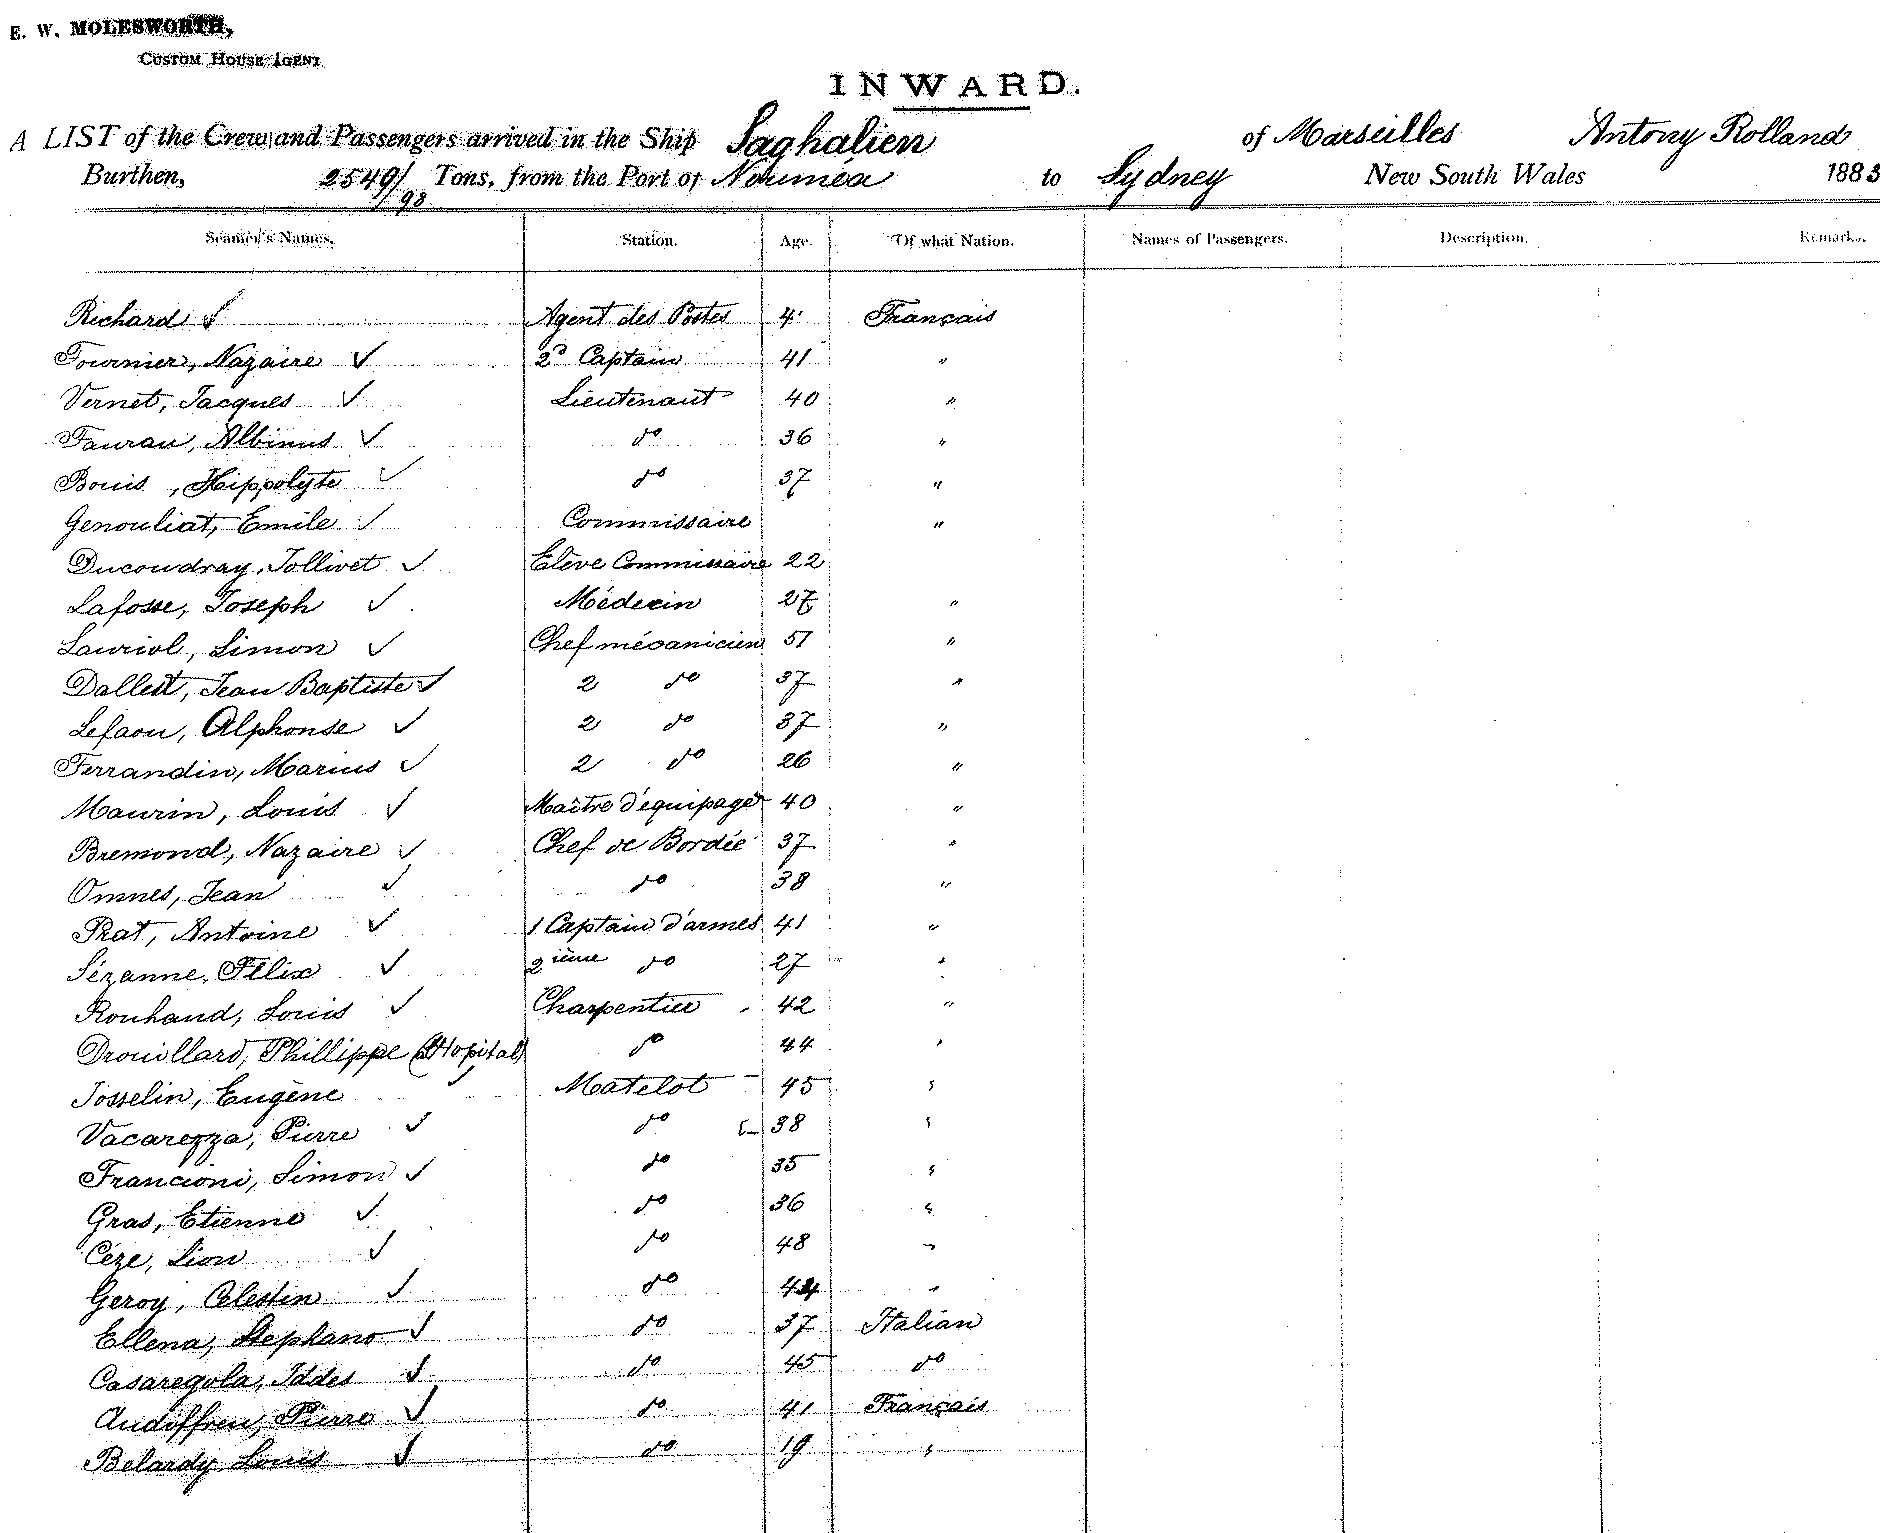 E. W. MOLESWORTH,
CUSTOM HOUSE AGENT
INWARD.
A LIST of the Crew and Passengers arrived in the Ship Saghalien of Marseilles Antony Rolland
Burthen, 2549/98 Tons, from the Port of Nouméa to Sydney New South Wales 1883
Seamen's Names. Station. Age. Of what Nation. Names of Passengers. Description. Remarks.
Richard ✓ Agent des Postes Français
Fournier, Nazaire ✓ 2d Captain 41 "
Vernet, Jacques ✓ Lieutenant 40 "
Faurau, Albinus ✓ do 36 "
Bouis, Hippolyte ✓ do 37 "
Genouliat, Emile ✓ Commissaire "
Ducoudray, Jollivet ✓ Elève Commissaire 22
Lafosse, Joseph ✓ Médecin 27 "
Lauriol, Simon ✓ Chef mécanicien 51 "
Dallest, Jean Baptiste ✓ 2 do 37 "
Lefaou, Alphonse ✓ 2 do 37 "
Ferrandin, Marius ✓ 2 do 26 "
Maurin, Louis ✓ Maître d'équipage 40 "
Bremond, Nazaire ✓ Chef de Bordée 37 "
Omnes, Jean ✓ do 38 "
Prat, Antoine ✓ 1 Captain d'armes 41 "
Sézanne, Félix ✓ 2ième do 27 "
Rouhaud, Louis ✓ Charpentier 42 "
Drouillard, Phillippe (Hopital) do 44 "
Josselin, Eugène ✓ Matelot 45 "
Vacarezza, Pierre ✓ do 38 "
Francioni, Simon ✓ do 35 "
Gras, Etienne ✓ do 36 "
Céze, Lion ✓ do 48 "
Geroy, Celestin ✓ do 44 "
Ellena, Stephano ✓ do 37 Italian
Casaregola, Iddes ✓ do 45 do
Audoffren, Pierre ✓ do 41 Français
Belardy Louis ✓ do 19 "